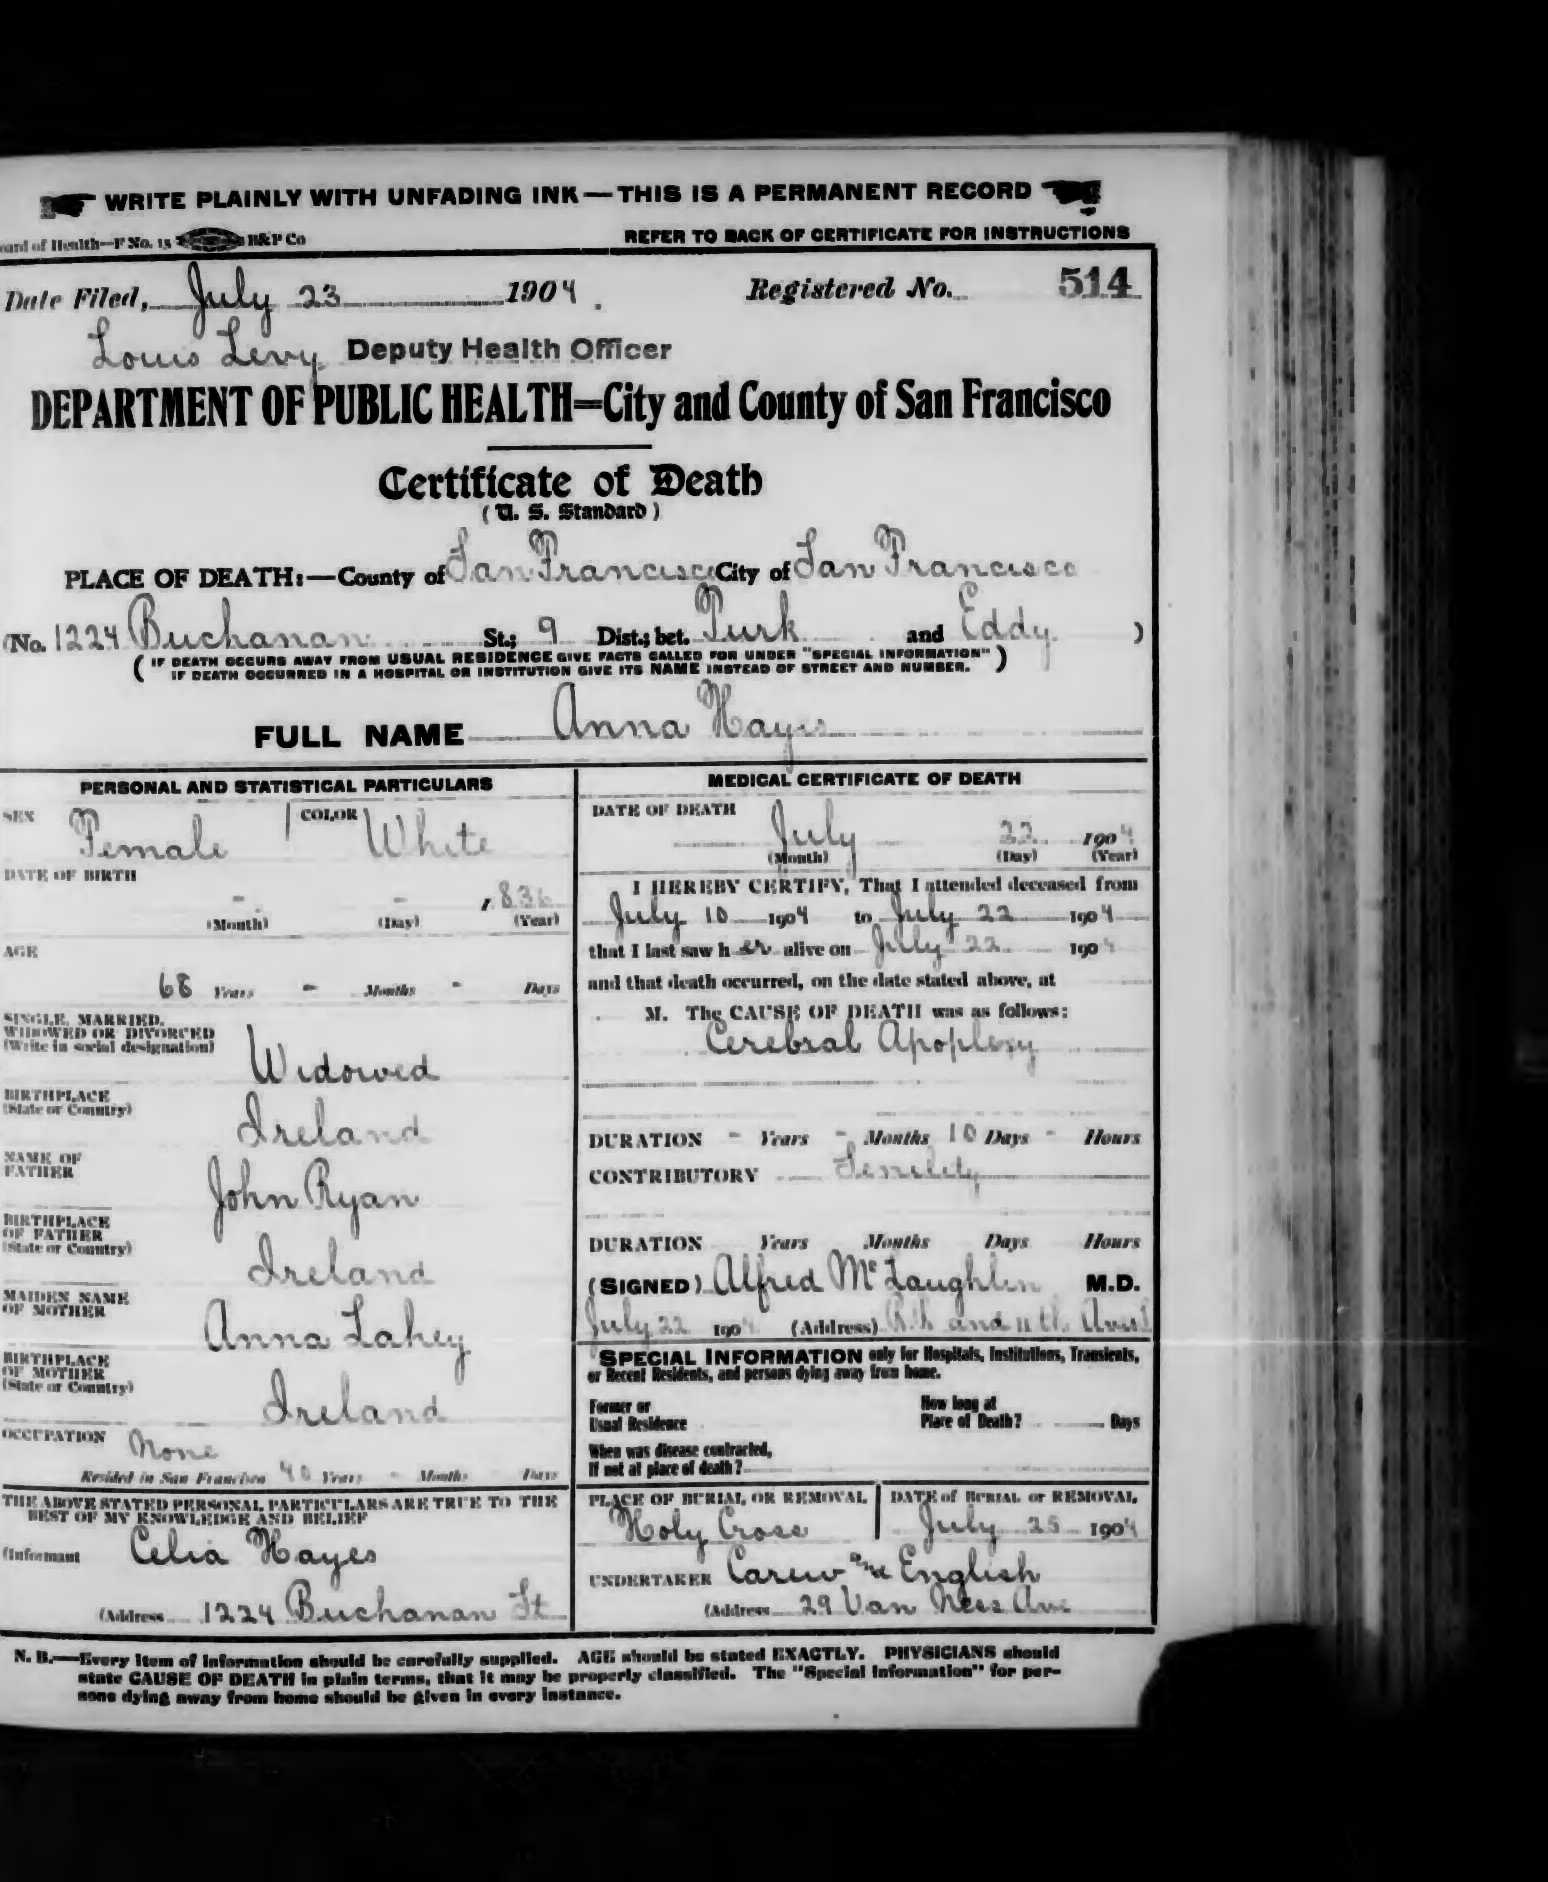 WRITE PLAINLY WITH UNFADING INK—THIS IS A PERMANENT RECORD
ard of Health—F No. 15 H&P Co REFER TO BACK OF CERTIFICATE FOR INSTRUCTIONS
Date Filed, July 23 1904. Registered No. 514
Louis Levy Deputy Health Officer
DEPARTMENT OF PUBLIC HEALTH=City and County of San Francisco
Certificate of Death
(U. S. Standard)
PLACE OF DEATH:—County of San Francisco City of San Francisco
(No. 1224 Buchanan St.; 9 Dist.; bet. Turk and Eddy )
( IF DEATH OCCURS AWAY FROM USUAL RESIDENCE GIVE FACTS CALLED FOR UNDER "SPECIAL INFORMATION" )
IF DEATH OCCURRED IN A HOSPITAL OR INSTITUTION GIVE ITS NAME INSTEAD OF STREET AND NUMBER.
FULL NAME Anna Hayes
PERSONAL AND STATISTICAL PARTICULARS
SEX Female COLOR White
DATE OF BIRTH
- - 1836
(Month) (Day) (Year)
AGE
68 Years - Months - Days
SINGLE, MARRIED,
WIDOWED OR DIVORCED
(Write in social designation)
Widowed
BIRTHPLACE
(State or Country)
Ireland
NAME OF
FATHER
John Ryan
BIRTHPLACE
OF FATHER
(State or Country)
Ireland
MAIDEN NAME
OF MOTHER
Anna Lahey
BIRTHPLACE
OF MOTHER
(State or Country)
Ireland
OCCUPATION None
Resided in San Francisco 40 Years - Months Days
THE ABOVE STATED PERSONAL PARTICULARS ARE TRUE TO THE
BEST OF MY KNOWLEDGE AND BELIEF
(Informant Celia Hayes
(Address 1224 Buchanan St
MEDICAL CERTIFICATE OF DEATH
DATE OF DEATH
July 22 1904
(Month) (Day) (Year)
I HEREBY CERTIFY, That I attended deceased from
July 10 1904 to July 22 1904
that I last saw her alive on July 22 1904
and that death occurred, on the date stated above, at
M. The CAUSE OF DEATH was as follows:
Cerebral Apoplexy
DURATION - Years - Months 10 Days - Hours
CONTRIBUTORY Senility
DURATION Years Months Days Hours
(SIGNED) Alfred McLaughlin M.D.
July 22 1904 (Address) and 11th Ave
SPECIAL INFORMATION only for Hospitals, Institutions, Transients,
or Recent Residents, and persons dying away from home.
Former or
Usual Residence
How long at
Place of Death? Days
When was disease contracted,
If not at place of death?
PLACE OF BURIAL OR REMOVAL
Holy Cross
DATE of BURIAL or REMOVAL
July 25 1904
UNDERTAKER Carew and English
(Address 29 Van Ness Ave
N. B.—Every item of information should be carefully supplied. AGE should be stated EXACTLY. PHYSICIANS should
state CAUSE OF DEATH in plain terms, that it may be properly classified. The "Special Information" for per-
sons dying away from home should be given in every instance.